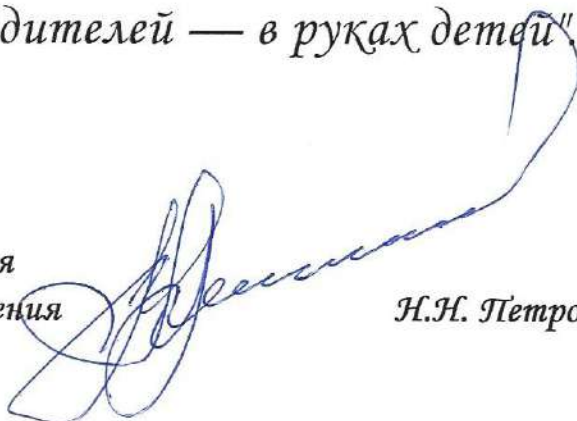 дителей — в руках детей".
я
ения Н.Н. Петро